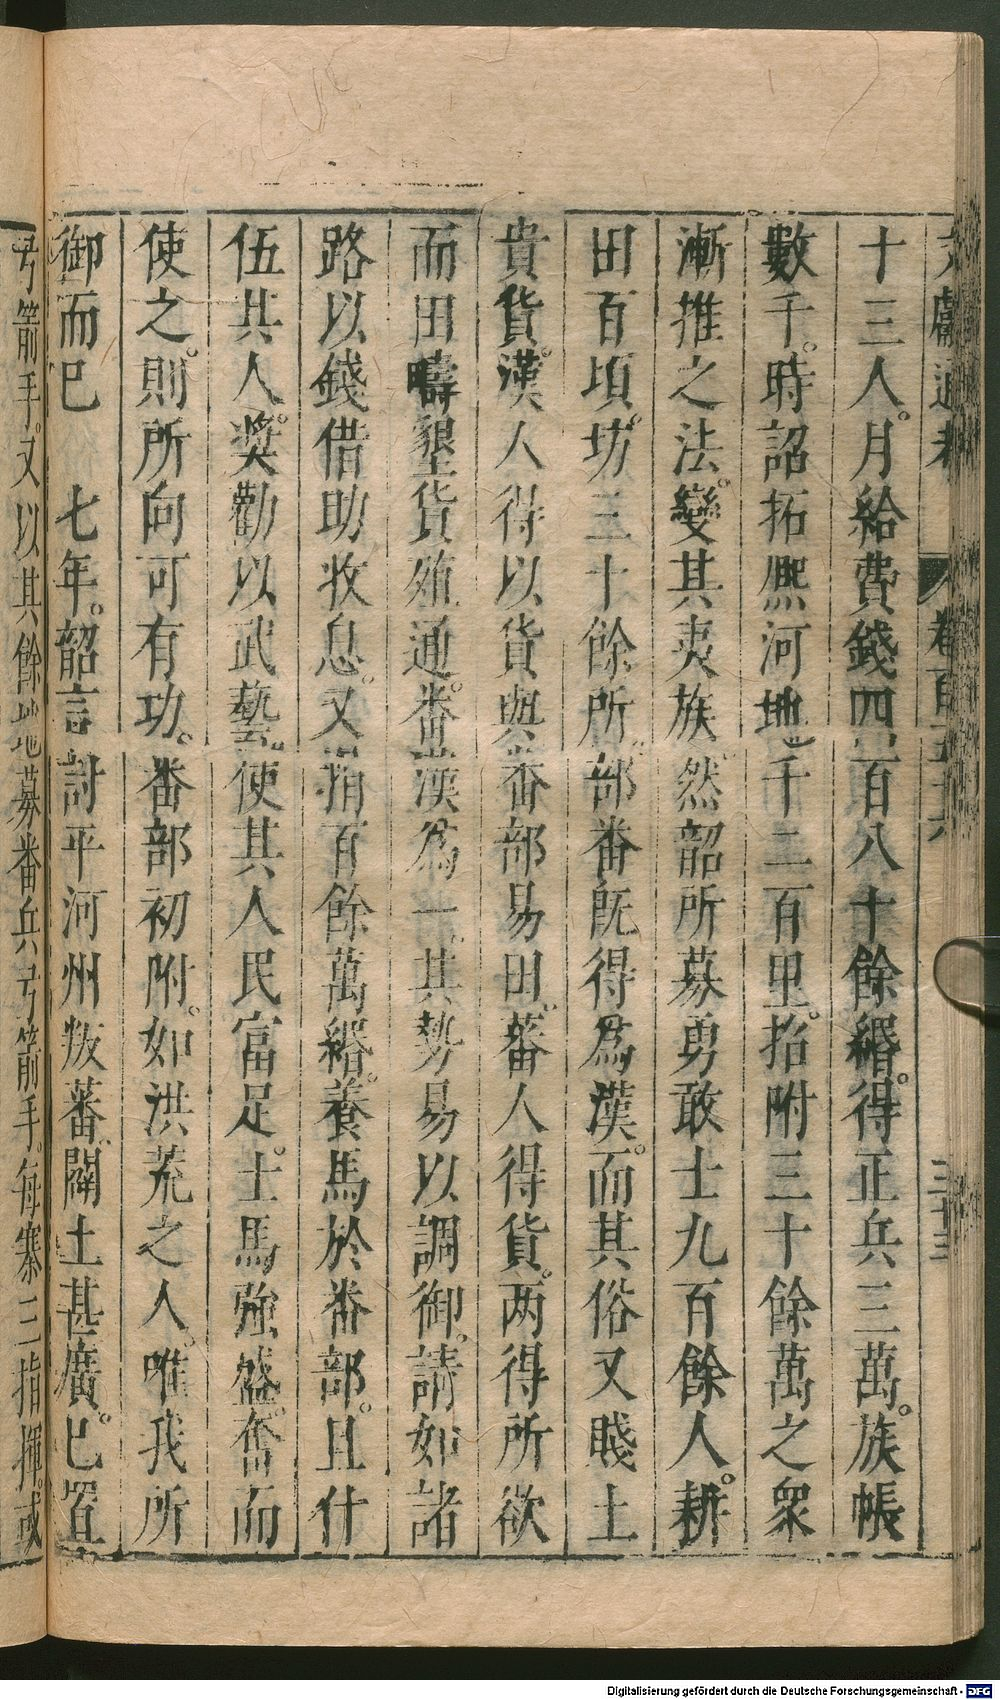 十三人。月給費錢四百八十餘緡。得正兵三萬。族帳
數千。時詔拓熈河地千二百里。招附三十餘萬之衆
漸推之法。變其夷族。然韶所募勇敢士九百餘人。耕
田百頃。坊三十餘所。部番既得爲漢。而其俗又賤土
貴貨。漢人得以貨與番部易田。蕃人得貨。兩得所欲
而田疇墾貨殖通。番漢爲一。其勢易以調御。請如諸
路以錢借助收息。又捐百餘萬緡。養馬於番部。且什
伍其人。奬勸以武藝。使其人民富足。士馬強盛。奮而
使之。則所向可有功。番部初附。如洪荒之人。唯我所
御而巳　七年。韶言討平河州叛蕃。闢土甚廣。巳置
弓箭手。又以其餘地募番兵弓箭手。每寨三指揮。或
Digitalisierung gefördert durch die Deutsche Forschungsgemeinschaft - DFG